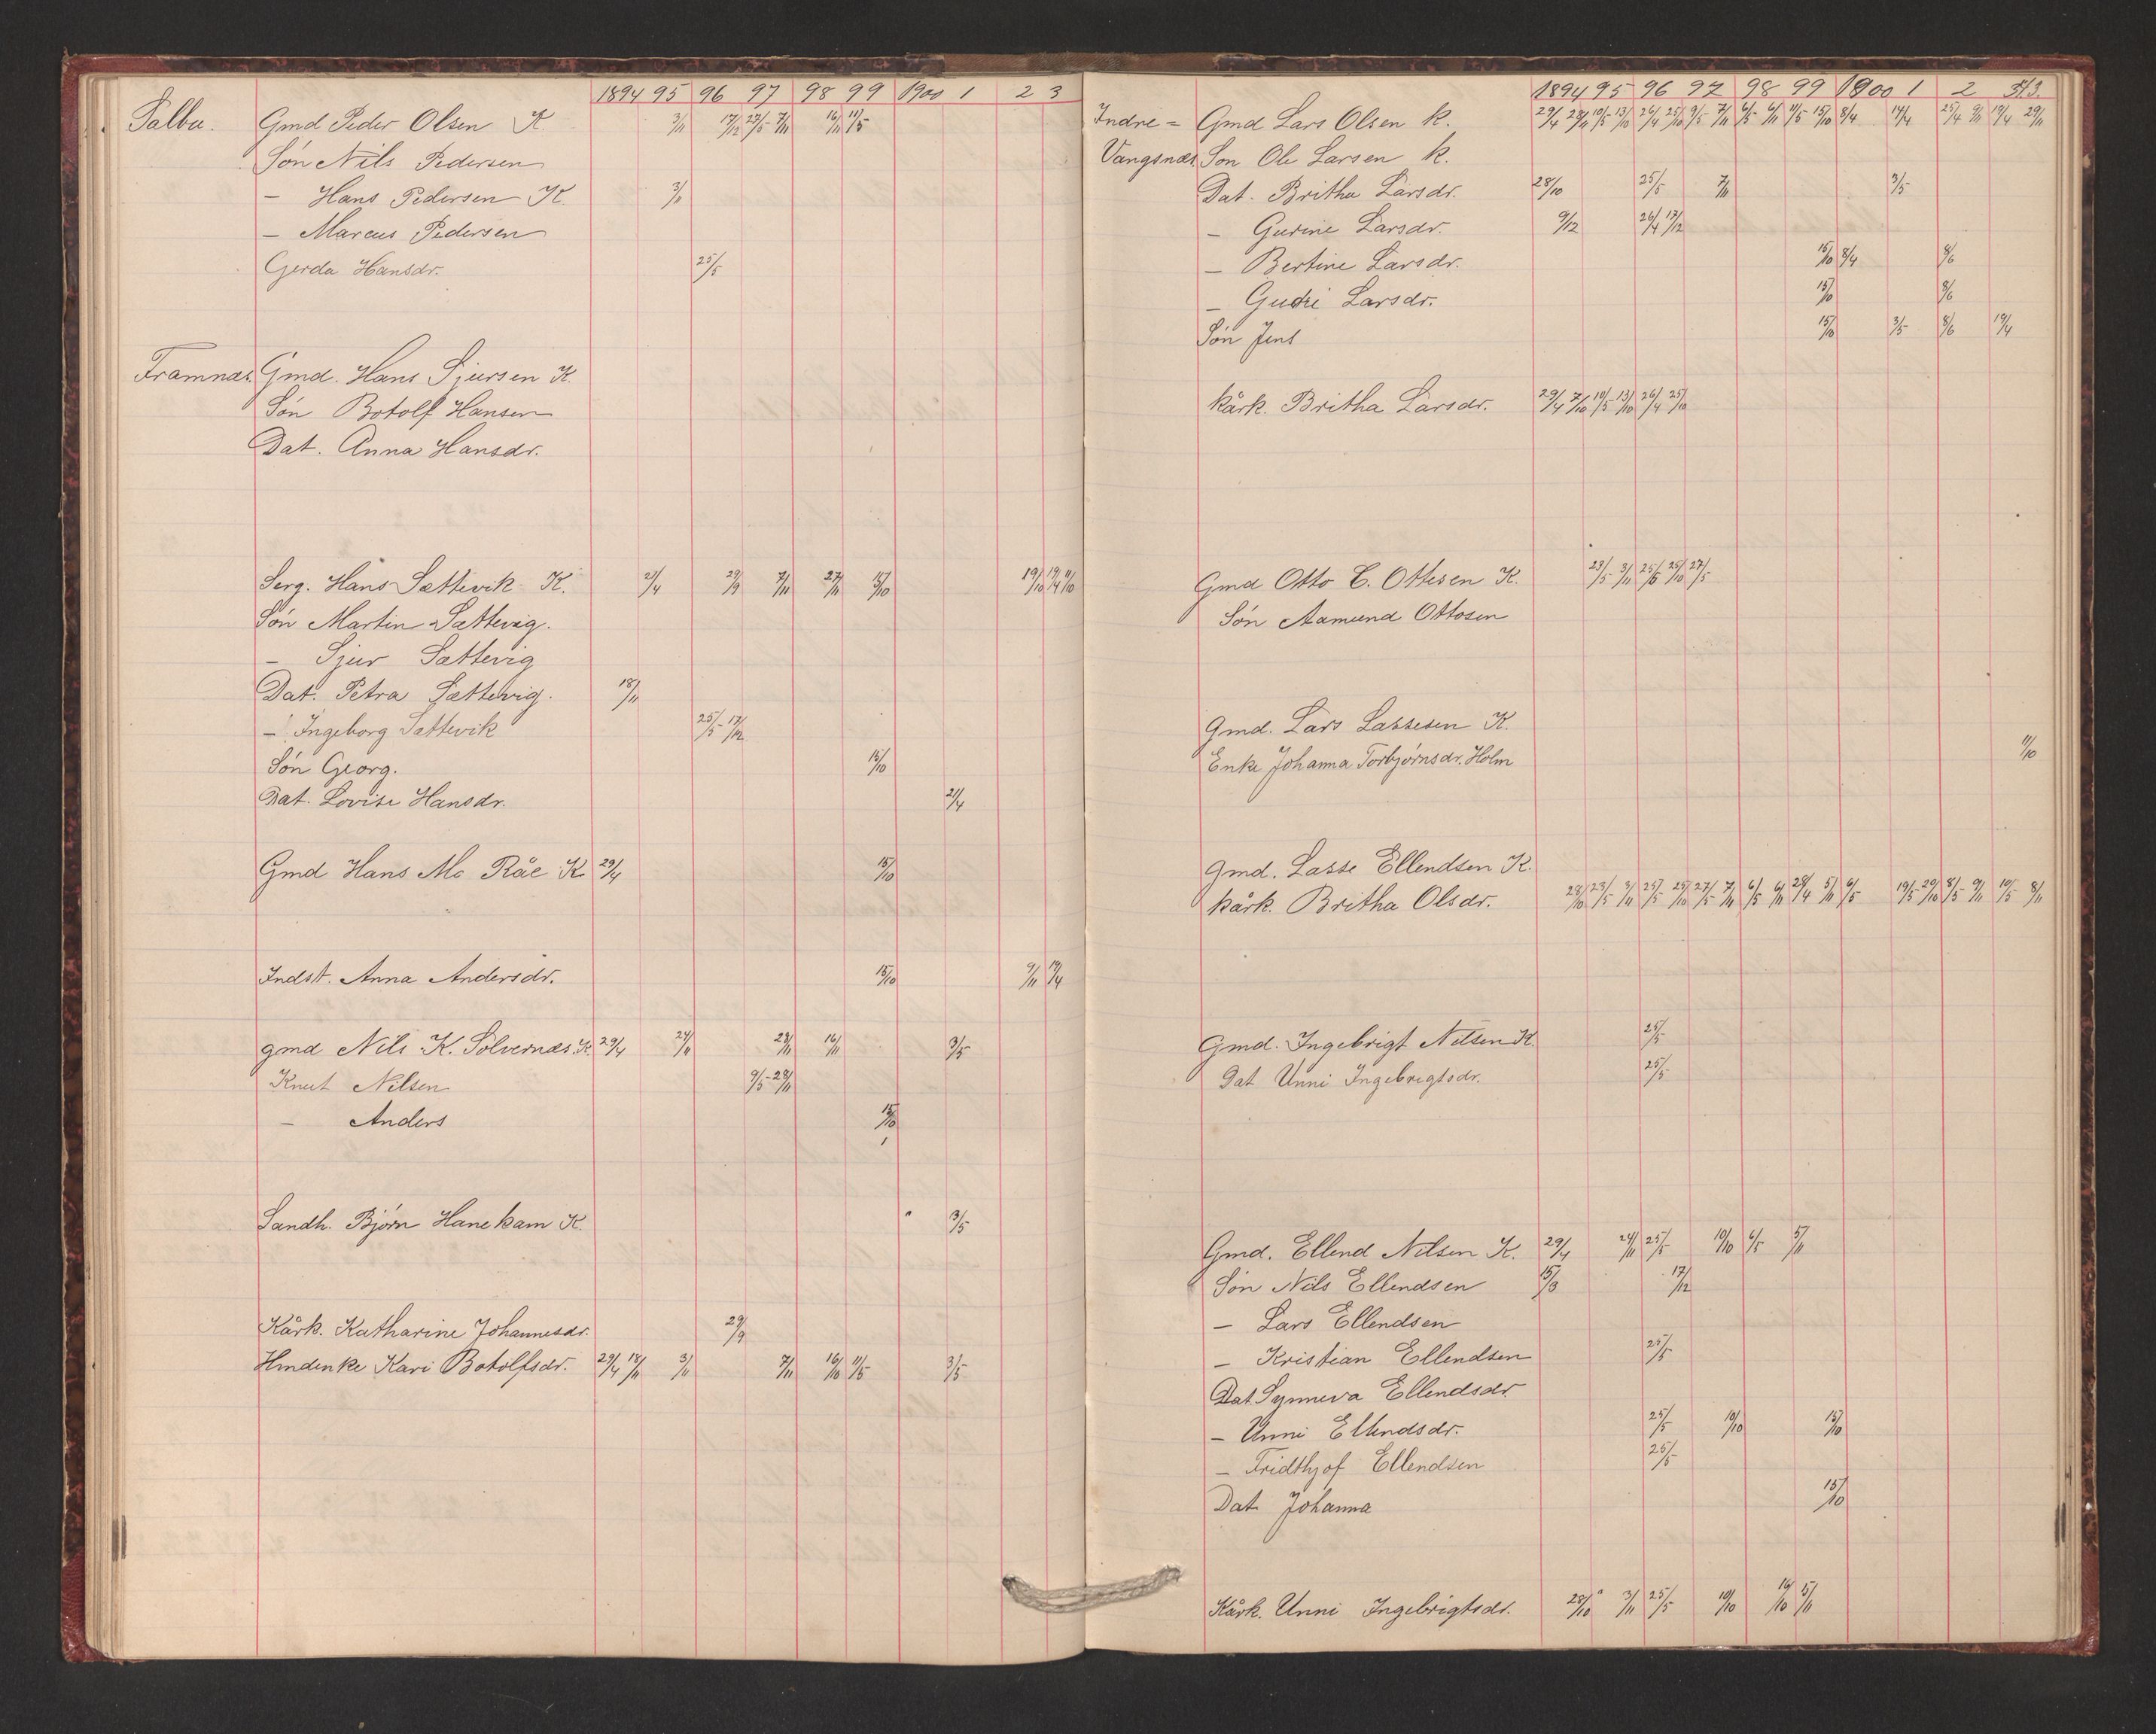 1894 95 96 97 98 99 1900 1 2 3
Salbu. Gmd Peder Olsen K. 3/11 17/12 27/5 7/11 16/11 11/5
Søn Nils Pedersen
- Hans Pedersen K 3/11
- Marcus Pedersen
Gerda Hansdr. 25/5
Framnæs. Gmd. Hans Sjursen K.
Søn Botolf Hansen
Dat. Anna Hansdr.
Serg. Hans Sættevik K. 21/4 29/9 7/11 27/11 15/10 19/10 19/4 11/10
Søn Martin Sættevig.
- Sjur Sættevig
Dat. Petra Sættevig. 18/11
- Ingeborg Sættevik 25/5 17/12
Søn Georg. 15/10
Dat. Lovise Hansdr. 21/4
Gmd Hans Mc Råe K. 29/4 15/10
Indst. Anna Andersdr. 15/10 9/11 19/4
gmd Nils K. Solvernæs. K. 29/4 24/11 28/11 16/11 3/5
Knut Nilsen 9/5 28/11
- Anders 15/10
Landh. Bjørn Hanekam K. 3/5
Kårk. Katharine Johannesdr. 29/9
Hmdenke Kari Botolfsdr. 29/4 18/11 3/11 7/11 16/10 11/5 3/5
1894 95 96 97 98 99 1900 1 2 3
Indre = Gmd Lars Olsen K. 29/4 28/11 10/5 13/10 26/4 25/10 9/5 7/11 6/5 6/11 11/5 15/10 8/4 14/4 25/4 9/11 19/4 29/11
Vangsnæs Søn Ole Larsen K.
Dat. Britha Larsdr. 28/10 25/5 7/11 3/5
- Gurine Larsdr. 9/12 26/4 17/12
- Bertine Larsdr. 15/10 8/4 8/6
- Gudri Larsdr. 15/10 8/6
Søn Jens 15/10 3/5 8/6 19/4
Kårk. Britha Larsdr. 29/4 7/10 10/5 13/10 26/4 25/10
Gmd Otto C. Ottesen K. 23/5 3/11 25/5 25/10 27/5
Søn Aamund Ottosen
Gmd. Lars Lassesen K.
Enke Johanna Torbjørnsdr. Holm 11/10
Gmd. Lasse Ellendsen K.
Kårk. Britha Olsdr. 28/10 23/5 3/11 25/5 25/10 27/5 7/11 6/5 6/11 28/4 5/11 6/5 19/5 20/10 8/5 9/11 10/5 8/11
Gmd. Ingebrigt Nilsen K. 25/5
Dat Unni Ingebrigtsdr. 25/5
Gmd. Ellend Nilsen K. 29/4 24/11 25/5 10/10 6/5 5/11
Søn Nils Ellendsen 15/3 17/12
- Lars Ellendsen
- Kristian Ellendsen 25/5
Dat. Synneva Ellendsdr.
- Unni Ellendsdr. 25/5 10/10 15/10
- Fridthjof Ellendsen 25/5
Dat. Johanna 15/10
Kårk. Unni Ingebrigtsdr. 28/10 3/11 25/5 10/10 16/10 5/11